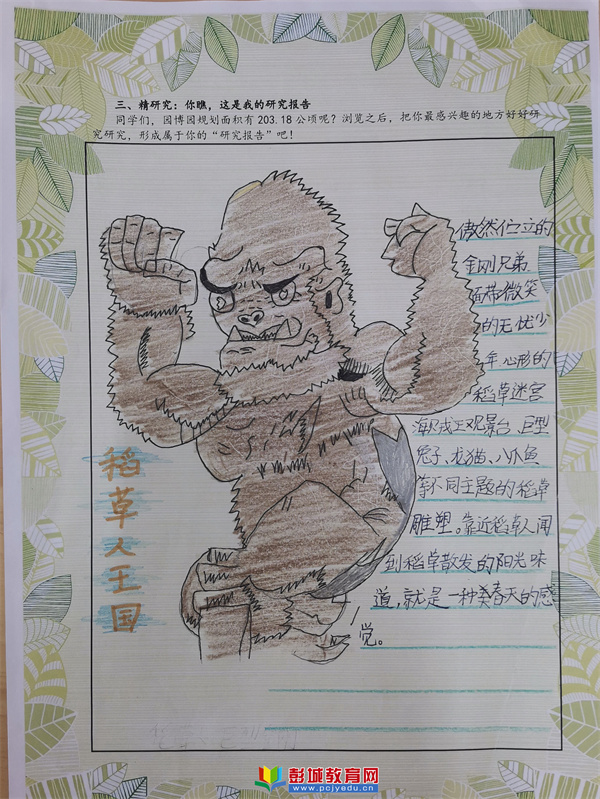 三、精研究：你瞧，这是我的研究报告
同学们，园博园规划面积有 203.18 公顷呢？浏览之后，把你最感兴趣的地方好好研
究研究，形成属于你的“研究报告”吧！
傲然伫立的
金刚兄弟
面带微笑
的无忧少
年 心形的
稻草迷宫
海贼王观景台 巨型
兔子、龙猫、八爪鱼
等不同主题的稻草
雕塑。靠近稻草人闻
到稻草散发的阳光味
道，就是一种美春天的感
觉。
稻草人王国
彭城教育网
www.pcjyedu.cn